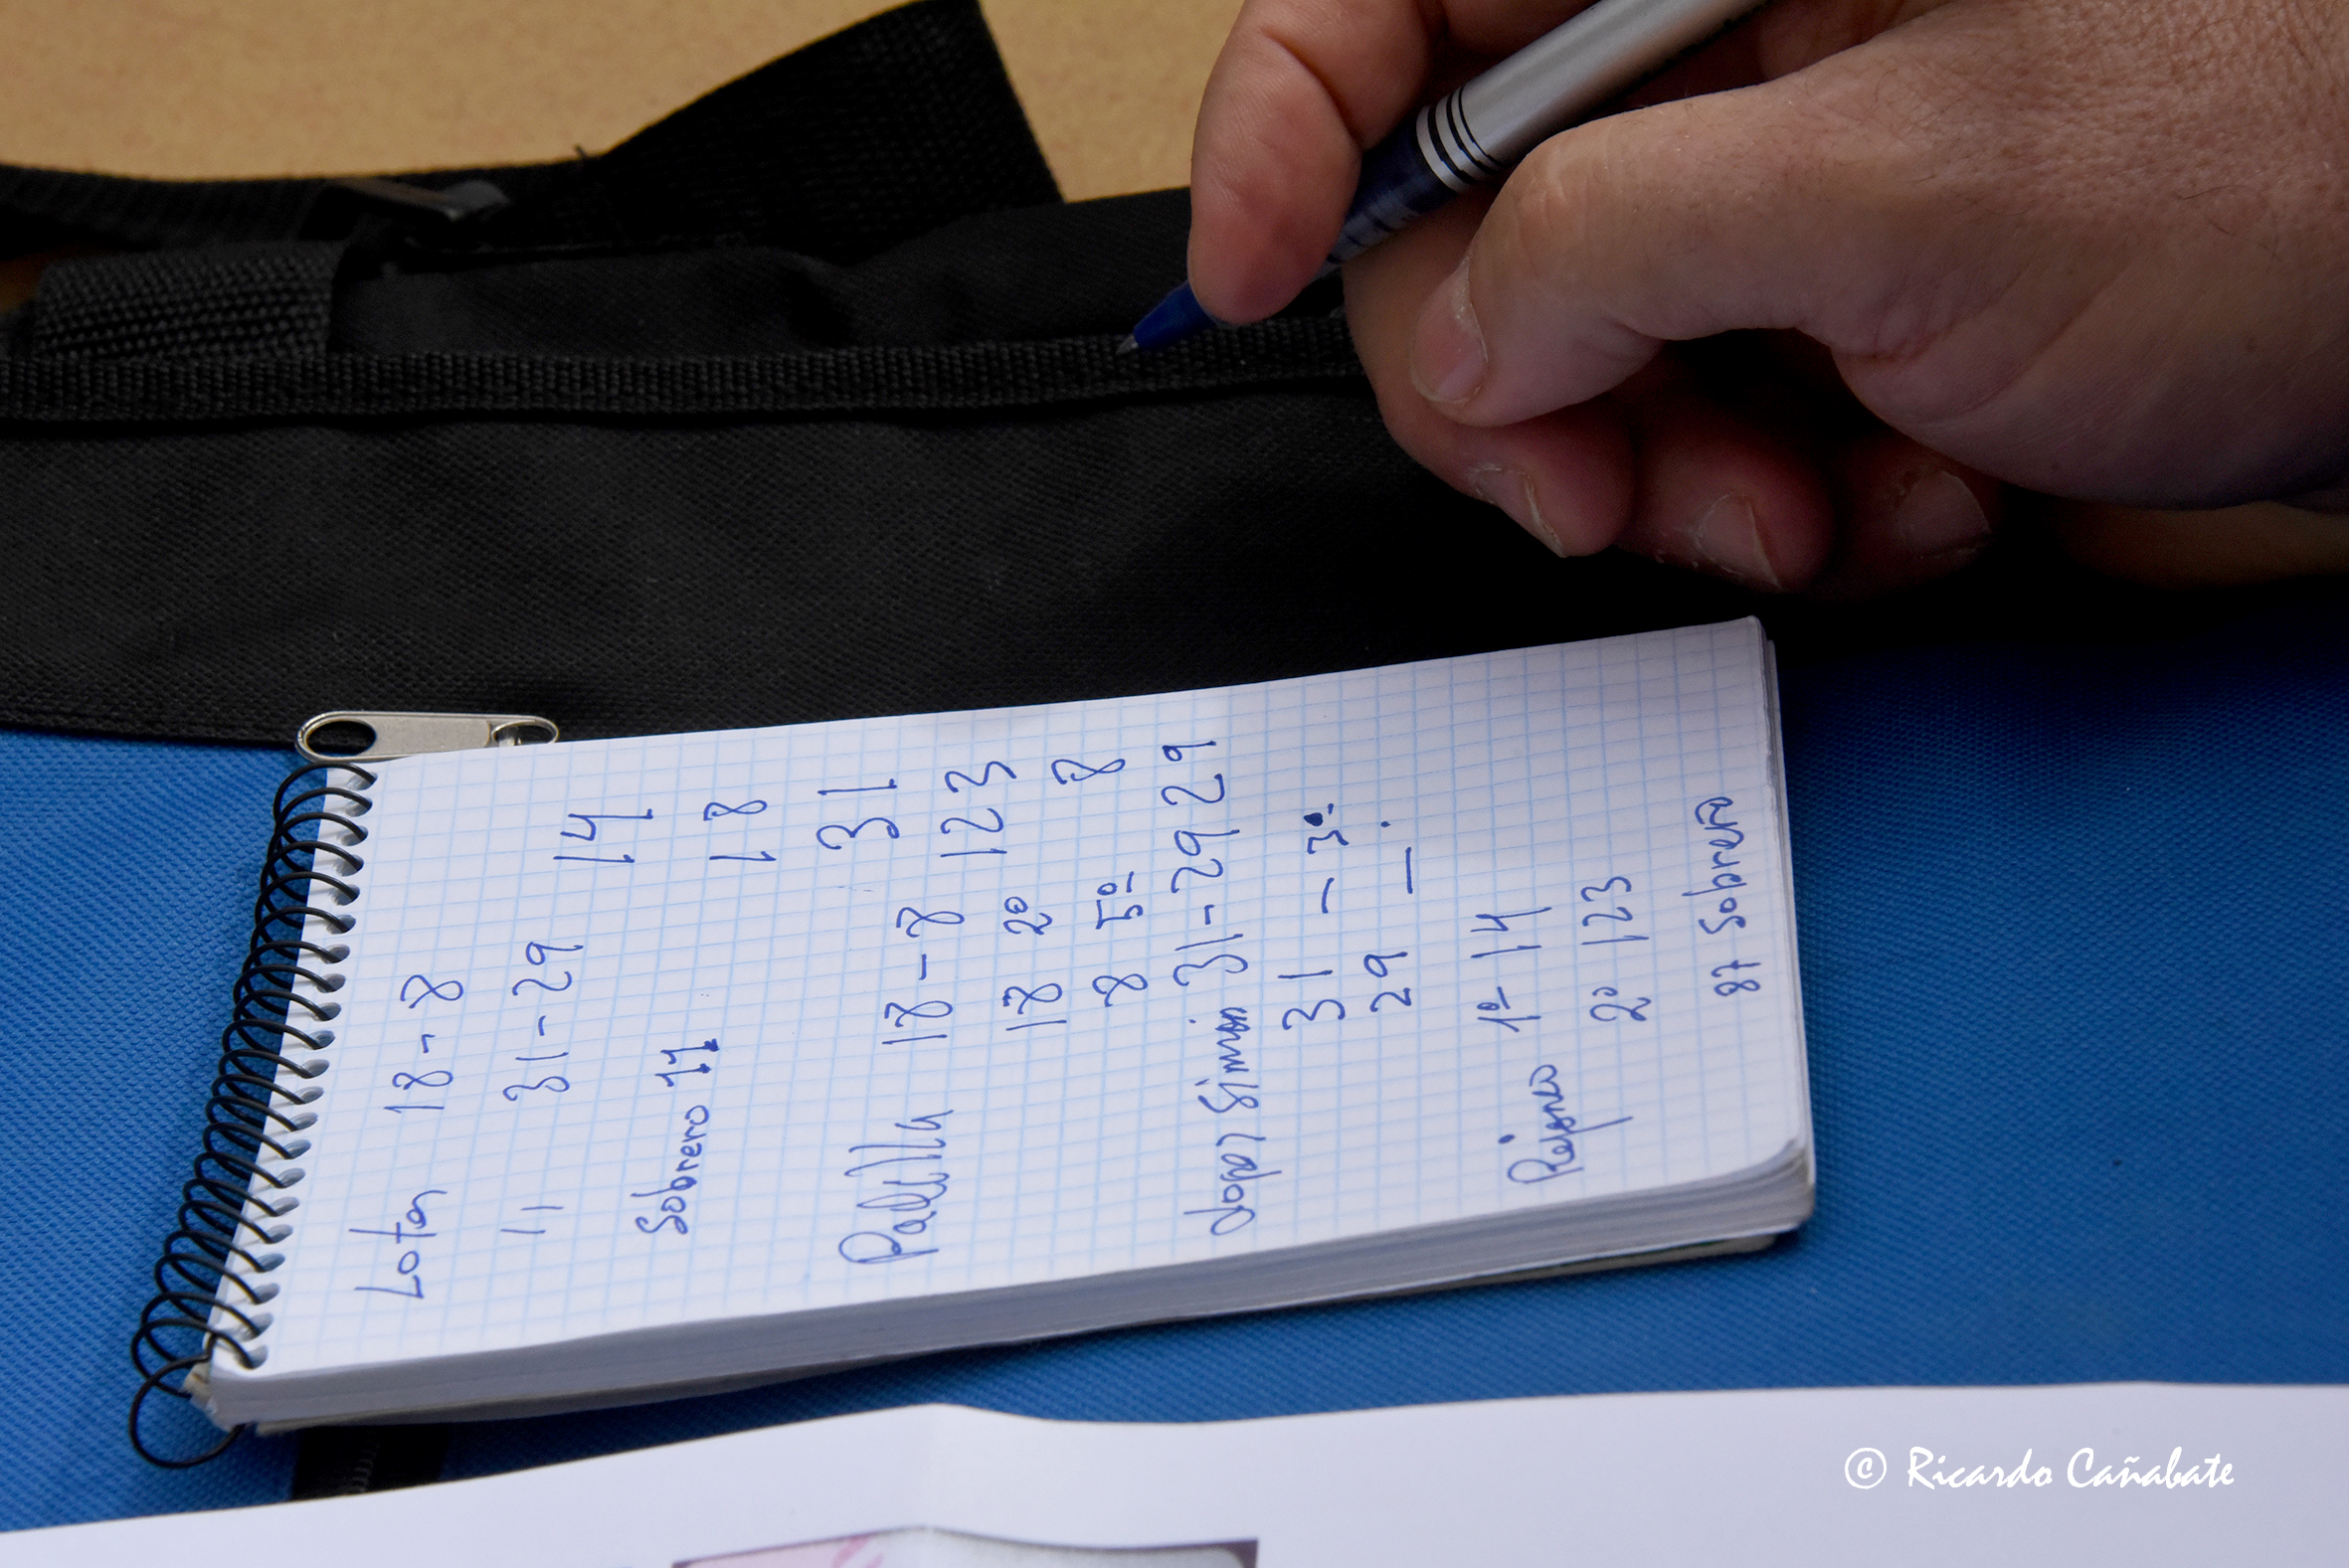 Lotes 18-8
11 31-29
14
Sobrero 11
18
31
Padilla 18-8
123
18 2º
8
8 5º
Lopez Simon 31-29 29
31 - 3º
29 - .
Rejoneo 1º 14
2º 123
87 Sobrero
© Ricardo Cañabate